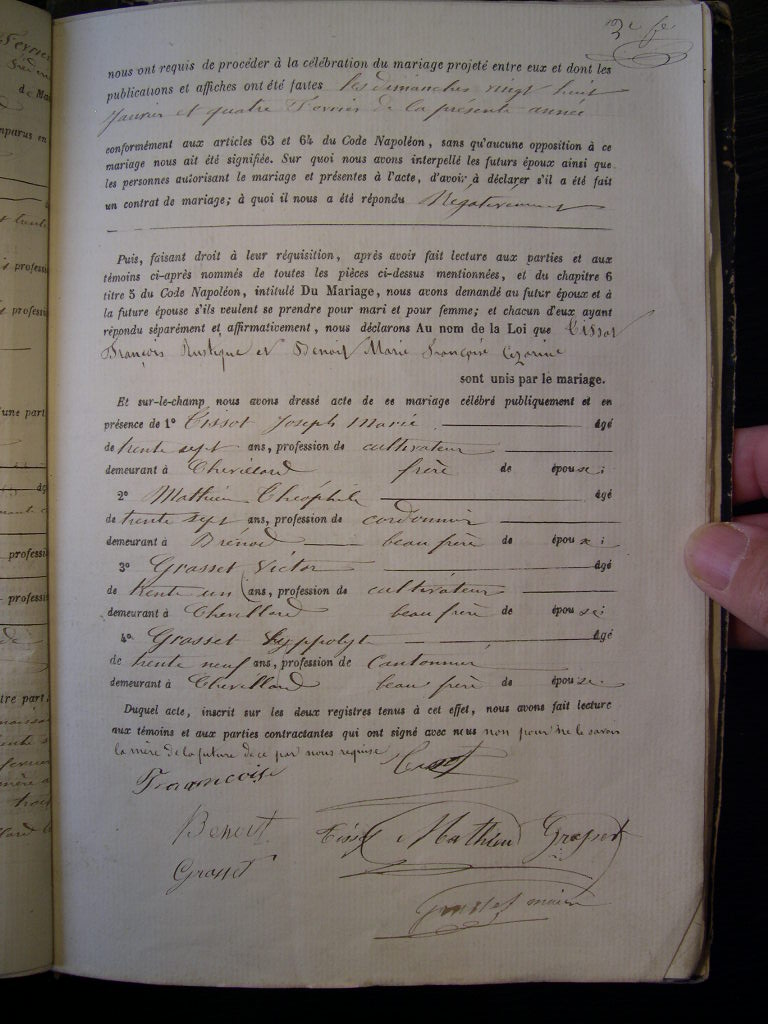 nous ont requis de procéder à la célébration du mariage projeté entre eux et dont les
publications et affiches ont été faites les dimanches vingt huit
Janvier et quatre Fevrier de la présente année
conformément aux articles 63 et 64 du Code Napoléon, sans qu'aucune opposition à ce
mariage nous ait été signifiée. Sur quoi nous avons interpellé les futurs époux ainsi que
les personnes autorisant le mariage et présentes à l'acte, d'avoir à déclarer s'il a été fait
un contrat de mariage; à quoi il nous a été répondu Négativement
Puis, faisant droit à leur réquisition, après avoir fait lecture aux parties et aux
témoins ci-après nommés de toutes les pièces ci-dessus mentionnées, et du chapitre 6
titre 5 du Code Napoléon, intitulé Du Mariage, nous avons demandé au futur époux et à
la future épouse s'ils veulent se prendre pour mari et pour femme; et chacun d'eux ayant
répondu séparément et affirmativement, nous déclarons Au nom de la Loi que Tissot
François Rustique et Benoit Marie Françoise Cezarine
sont unis par le mariage.
Et sur-le-champ nous avons dressé acte de ce mariage célébré publiquement et en
présence de 1° Tissot Joseph Marie âgé
de trente sept ans, profession de cultivateur
demeurant à Chevillard frère de épouse;
2° Mathieu Théophile âgé
de trente sept ans, profession de cordonnier
demeurant à Brénod beau frère de épouse;
3° Grosset Victor âgé
de trente un ans, profession de cultivateur
demeurant à Chevillard beau frère de épouse;
4° Grosset Hyppolyte âgé
de trente neuf ans, profession de Cantonnier
demeurant à Chevillard beau frère de épouse
Duquel acte, inscrit sur les deux registres tenus à cet effet, nous avons fait lecture
aux témoins et aux parties contractantes qui ont signé avec nous non pour ne le savoir
la mère de la future de ce par nous requise
Françoise Tissot
Benoit Tissot Mathieu Grosset
Grosset
Grosset maire